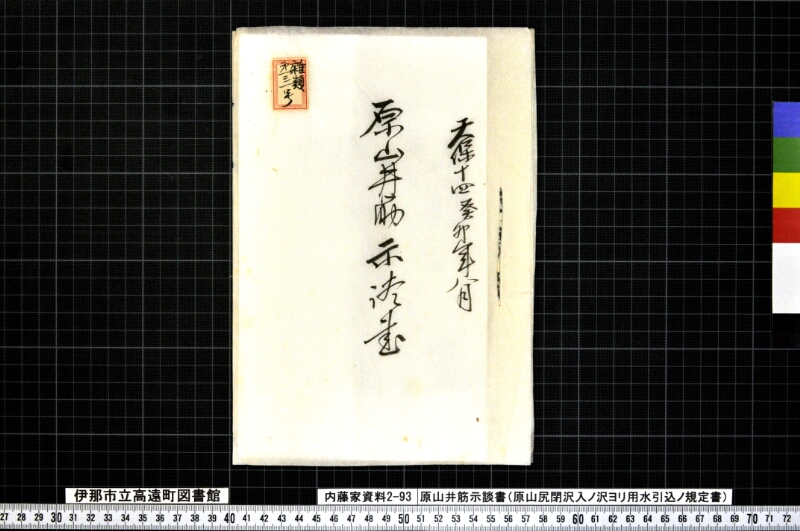 雑類
第三一号
天保十四癸卯年八月
原山井筋示談書
伊那市立高遠町図書館
内藤家資料2-93
原山井筋示談書(原山尻閉沢入ノ沢ヨリ用水引込ノ規定書)
27 28 29 30 31 32 33 34 35 36 37 38 39 40 41 42 43 44 45 46 47 48 49 50 51 52 53 54 55 56 57 58 59 60 61 62 63 64 65 66 67 68 69 70 71 72